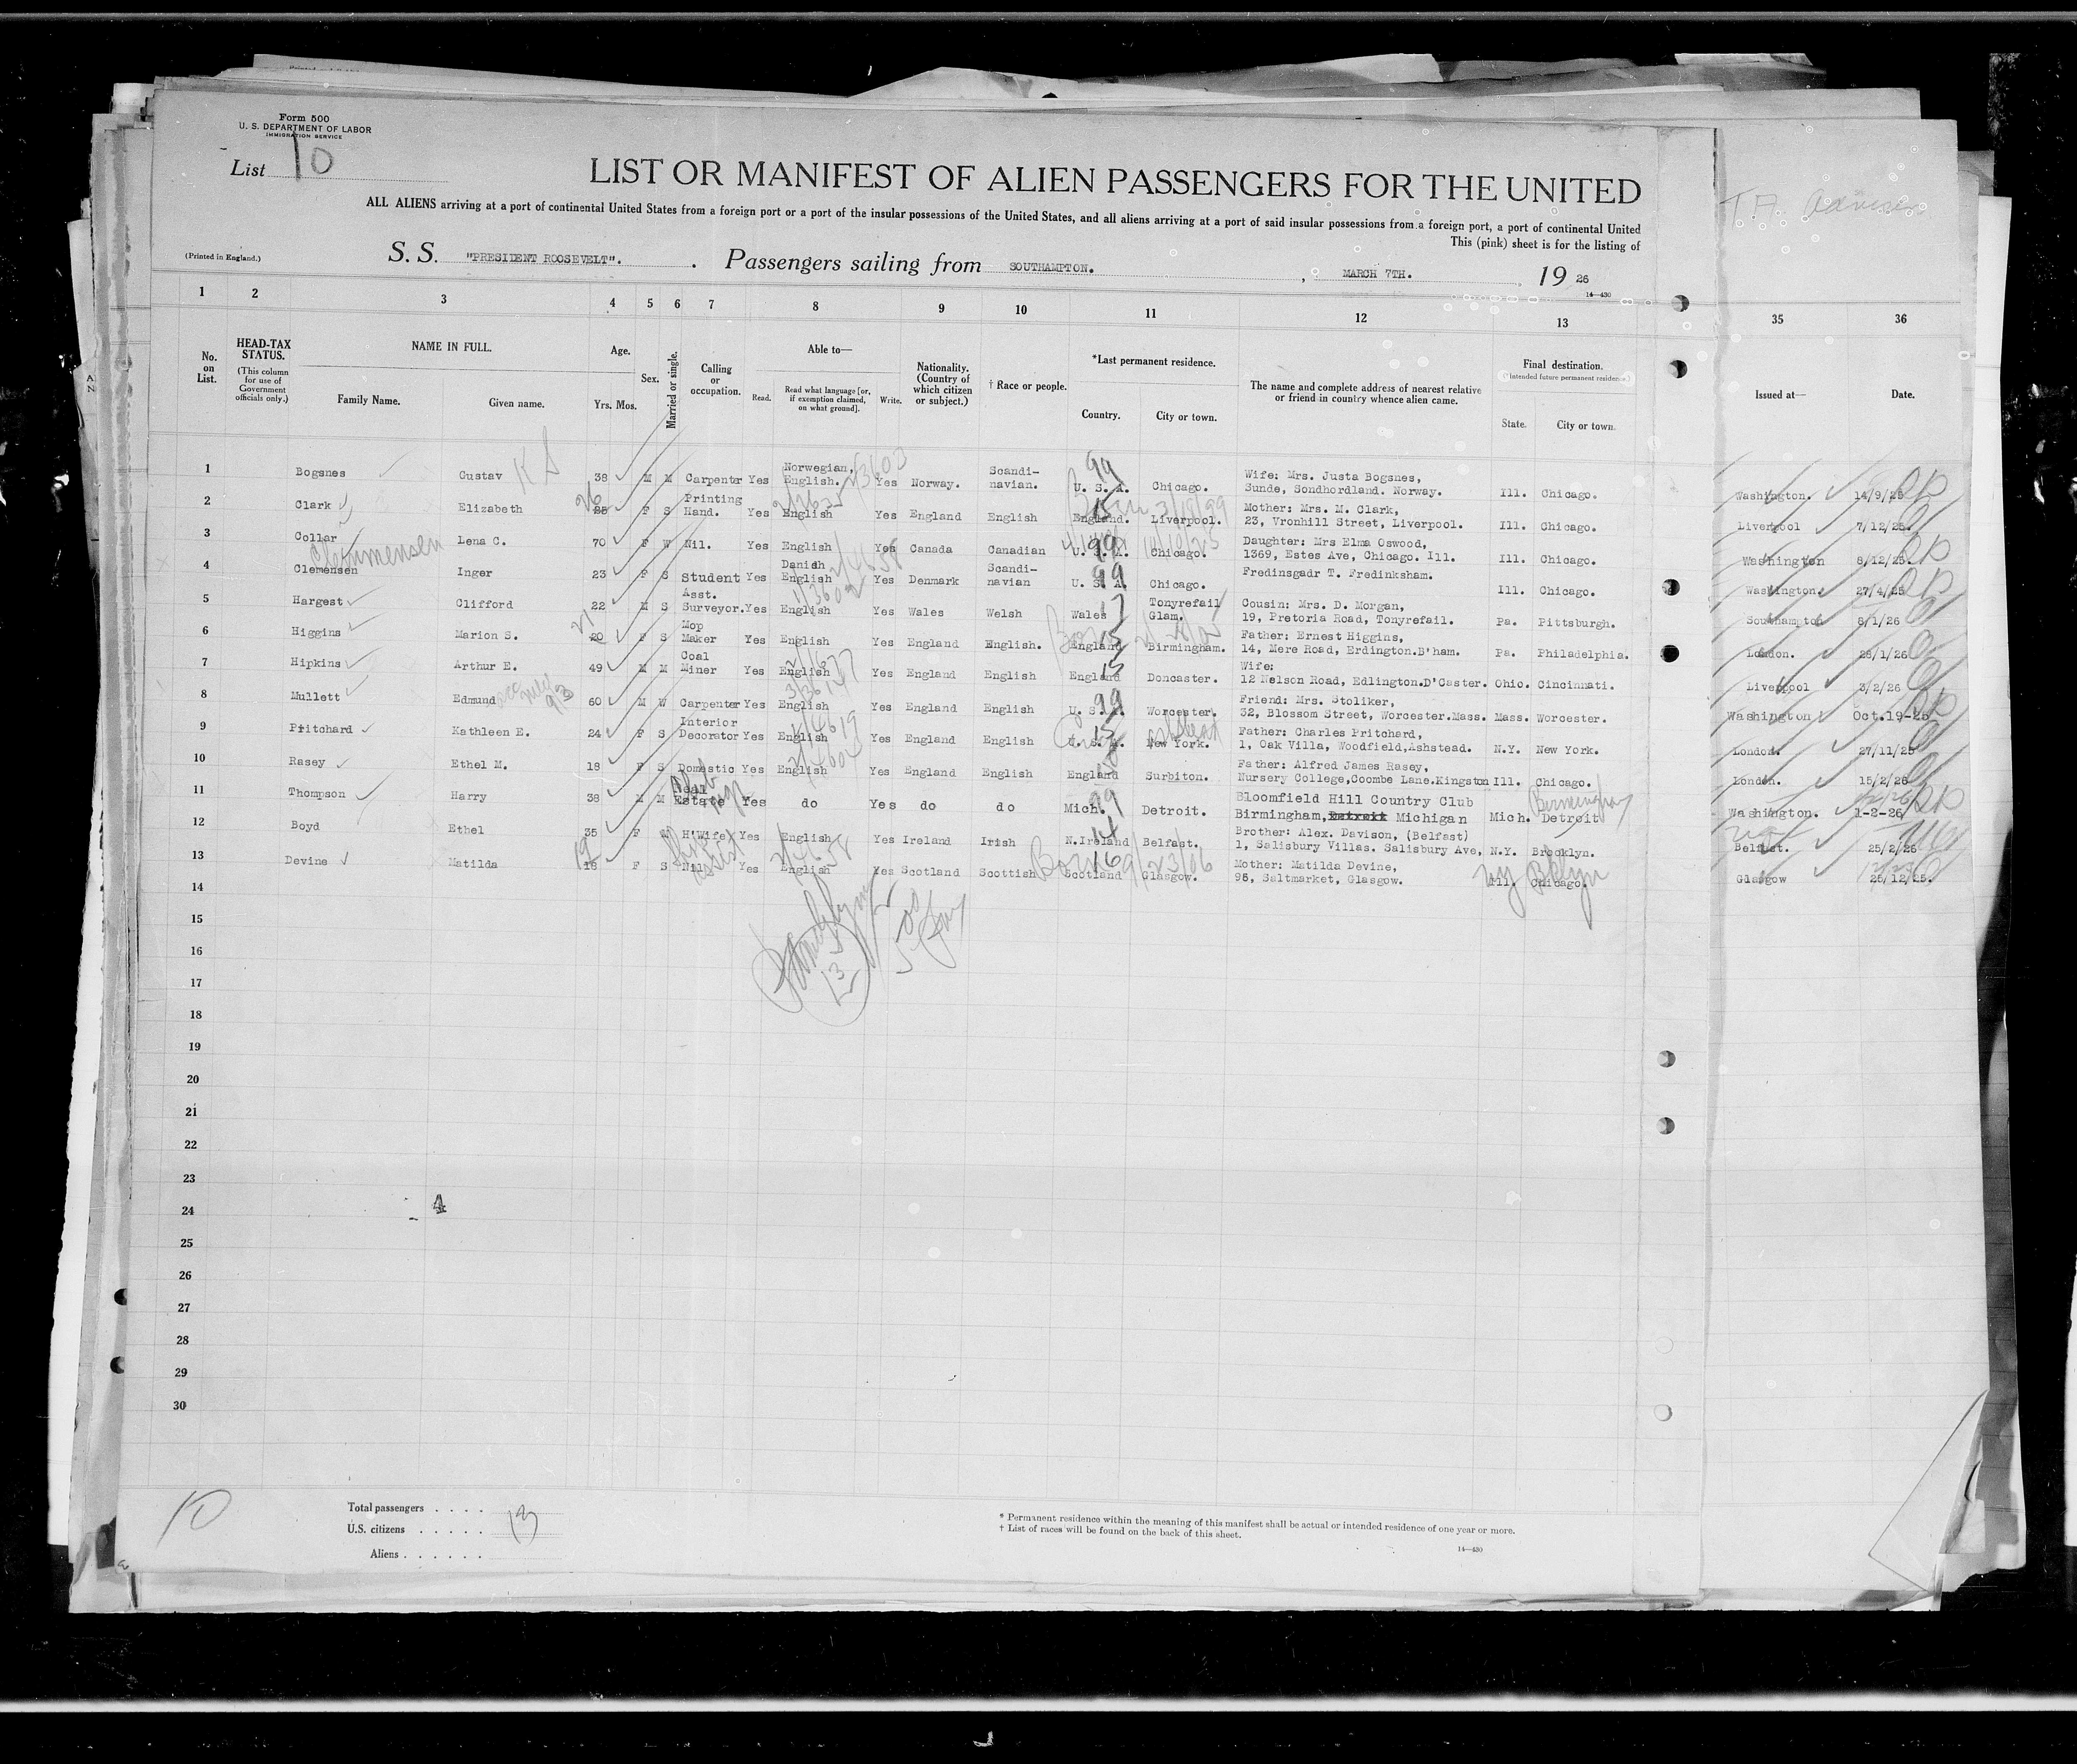 Form 500
U. S. DEPARTMENT OF LABOR
IMMIGRATION SERVICE
List 10
LIST OR MANIFEST OF ALIEN PASSENGERS FOR THE UNITED
ALL ALIENS arriving at a port of continental United States from a foreign port or a port of the insular possessions of the United States, and all aliens arriving at a port of said insular possessions from a foreign port, a port of continental United
This (pink) sheet is for the listing of
(Printed in England.) S. S. "PRESIDENT ROOSEVELT". Passengers sailing from SOUTHAMPTON. , MARCH 7TH. , 19 26
14—430
1 2 3 4 5 6 7 8 9 10 11 12 13 35 36
No. on List. HEAD-TAX STATUS. (This column for use of Government officials only.) NAME IN FULL. Family Name. Given name. Age. Yrs. Mos. Sex. Married or single. Calling or occupation. Able to— Read. Read what language [or, if exemption claimed, on what ground]. Write. Nationality. (Country of which citizen or subject.) † Race or people. *Last permanent residence. Country. City or town. The name and complete address of nearest relative or friend in country whence alien came. Final destination. (*Intended future permanent residence.) State. City or town. Issued at— Date.
1 Bogsnes Gustav 38 M M Carpenter Yes Norwegian, English. Yes Norway. Scandi-navian. U. S. A. 99 Chicago. Wife: Mrs. Justa Bogsnes, Sunde, Sondhordland. Norway. Ill. Chicago. Washington. 14/9/25
2 Clark Elizabeth 25 26 F S Printing Hand. Yes English Yes England English England. 15 Liverpool. Mother: Mrs. M. Clark, 23, Vronhill Street, Liverpool. Ill. Chicago. Liverpool 7/12/25.
3 Collar Lena C. 70 F W Nil. Yes English Yes Canada Canadian U. S. A. 99 Chicago. Daughter: Mrs Elma Oswood, 1369, Estes Ave, Chicago. Ill. Ill. Chicago. Washington 8/12/25.
Clemmensen
4 Clemensen Inger 23 F S Student Yes Danish English Yes Denmark Scandi-navian U. S. A. 99 Chicago. Fredinsgadr T. Fredinksham. Ill. Chicago. Washington. 27/4/25
5 Hargest Clifford 22 M S Asst. Surveyor. Yes English Yes Wales Welsh Wales 17 Tonyrefail Glam. Cousin: Mrs. D. Morgan, 19, Pretoria Road, Tonyrefail. Pa. Pittsburgh. Southampton 8/1/26
6 Higgins Marion S. 20 21 F S Mop Maker Yes English Yes England English. England 15 Birmingham. Father: Ernest Higgins, 14, Mere Road, Erdington.B'ham. Pa. Philadelphia. London. 28/1/26
7 Hipkins Arthur E. 49 M M Coal Miner Yes English Yes England English England 15 Doncaster. Wife: 12 Nelson Road, Edlington.D'Caster. Ohio. Cincinnati. Liverpool 3/2/26
8 Mullett Edmund 60 M W Carpenter Yes English Yes England English U. S. A. 99 Worcester. Friend: Mrs. Stoliker, 32, Blossom Street, Worcester.Mass. Mass. Worcester. Washington Oct.19-25
9 Pritchard Kathleen E. 24 F S Interior Decorator Yes English Yes England English U. S. A. 15 New York. Father: Charles Pritchard, 1, Oak Villa, Woodfield,Ashstead. N.Y. New York. London. 27/11/25
10 Rasey Ethel M. 18 F S Domestic Yes English Yes England English England Surbiton. Father: Alfred James Rasey, Nursery College,Coombe Lane.Kingston Ill. Chicago. London. 15/2/26
11 Thompson Harry 38 M M Real Estate Yes do Yes do do Mich. 99 Detroit. Bloomfield Hill Country Club Birmingham, Detroit Michigan Mich. Detroit Birmingham Washington. 1-2-26
12 Boyd Ethel 35 F M H'Wife Yes English Yes Ireland Irish N.Ireland 14 Belfast. Brother: Alex. Davison, (Belfast) 1, Salisbury Villas. Salisbury Ave, N.Y. Brooklyn. Belfast. 25/2/26
13 Devine Matilda 18 19 F S Nil Yes English Yes Scotland Scottish Scotland 16 Glasgow. Born 9/23/06 Mother: Matilda Devine, 96, Saltmarket, Glasgow. Ill. Chicago. NY Bklyn Glasgow 25/12/25.
14
15
16
17
18
19
20
21
22
23
24
25
26
27
28
29
30
10
Total passengers . . . .
U.S. citizens . . . . . 13
Aliens . . . . . .
* Permanent residence within the meaning of this manifest shall be actual or intended residence of one year or more.
† List of races will be found on the back of this sheet.
14—430